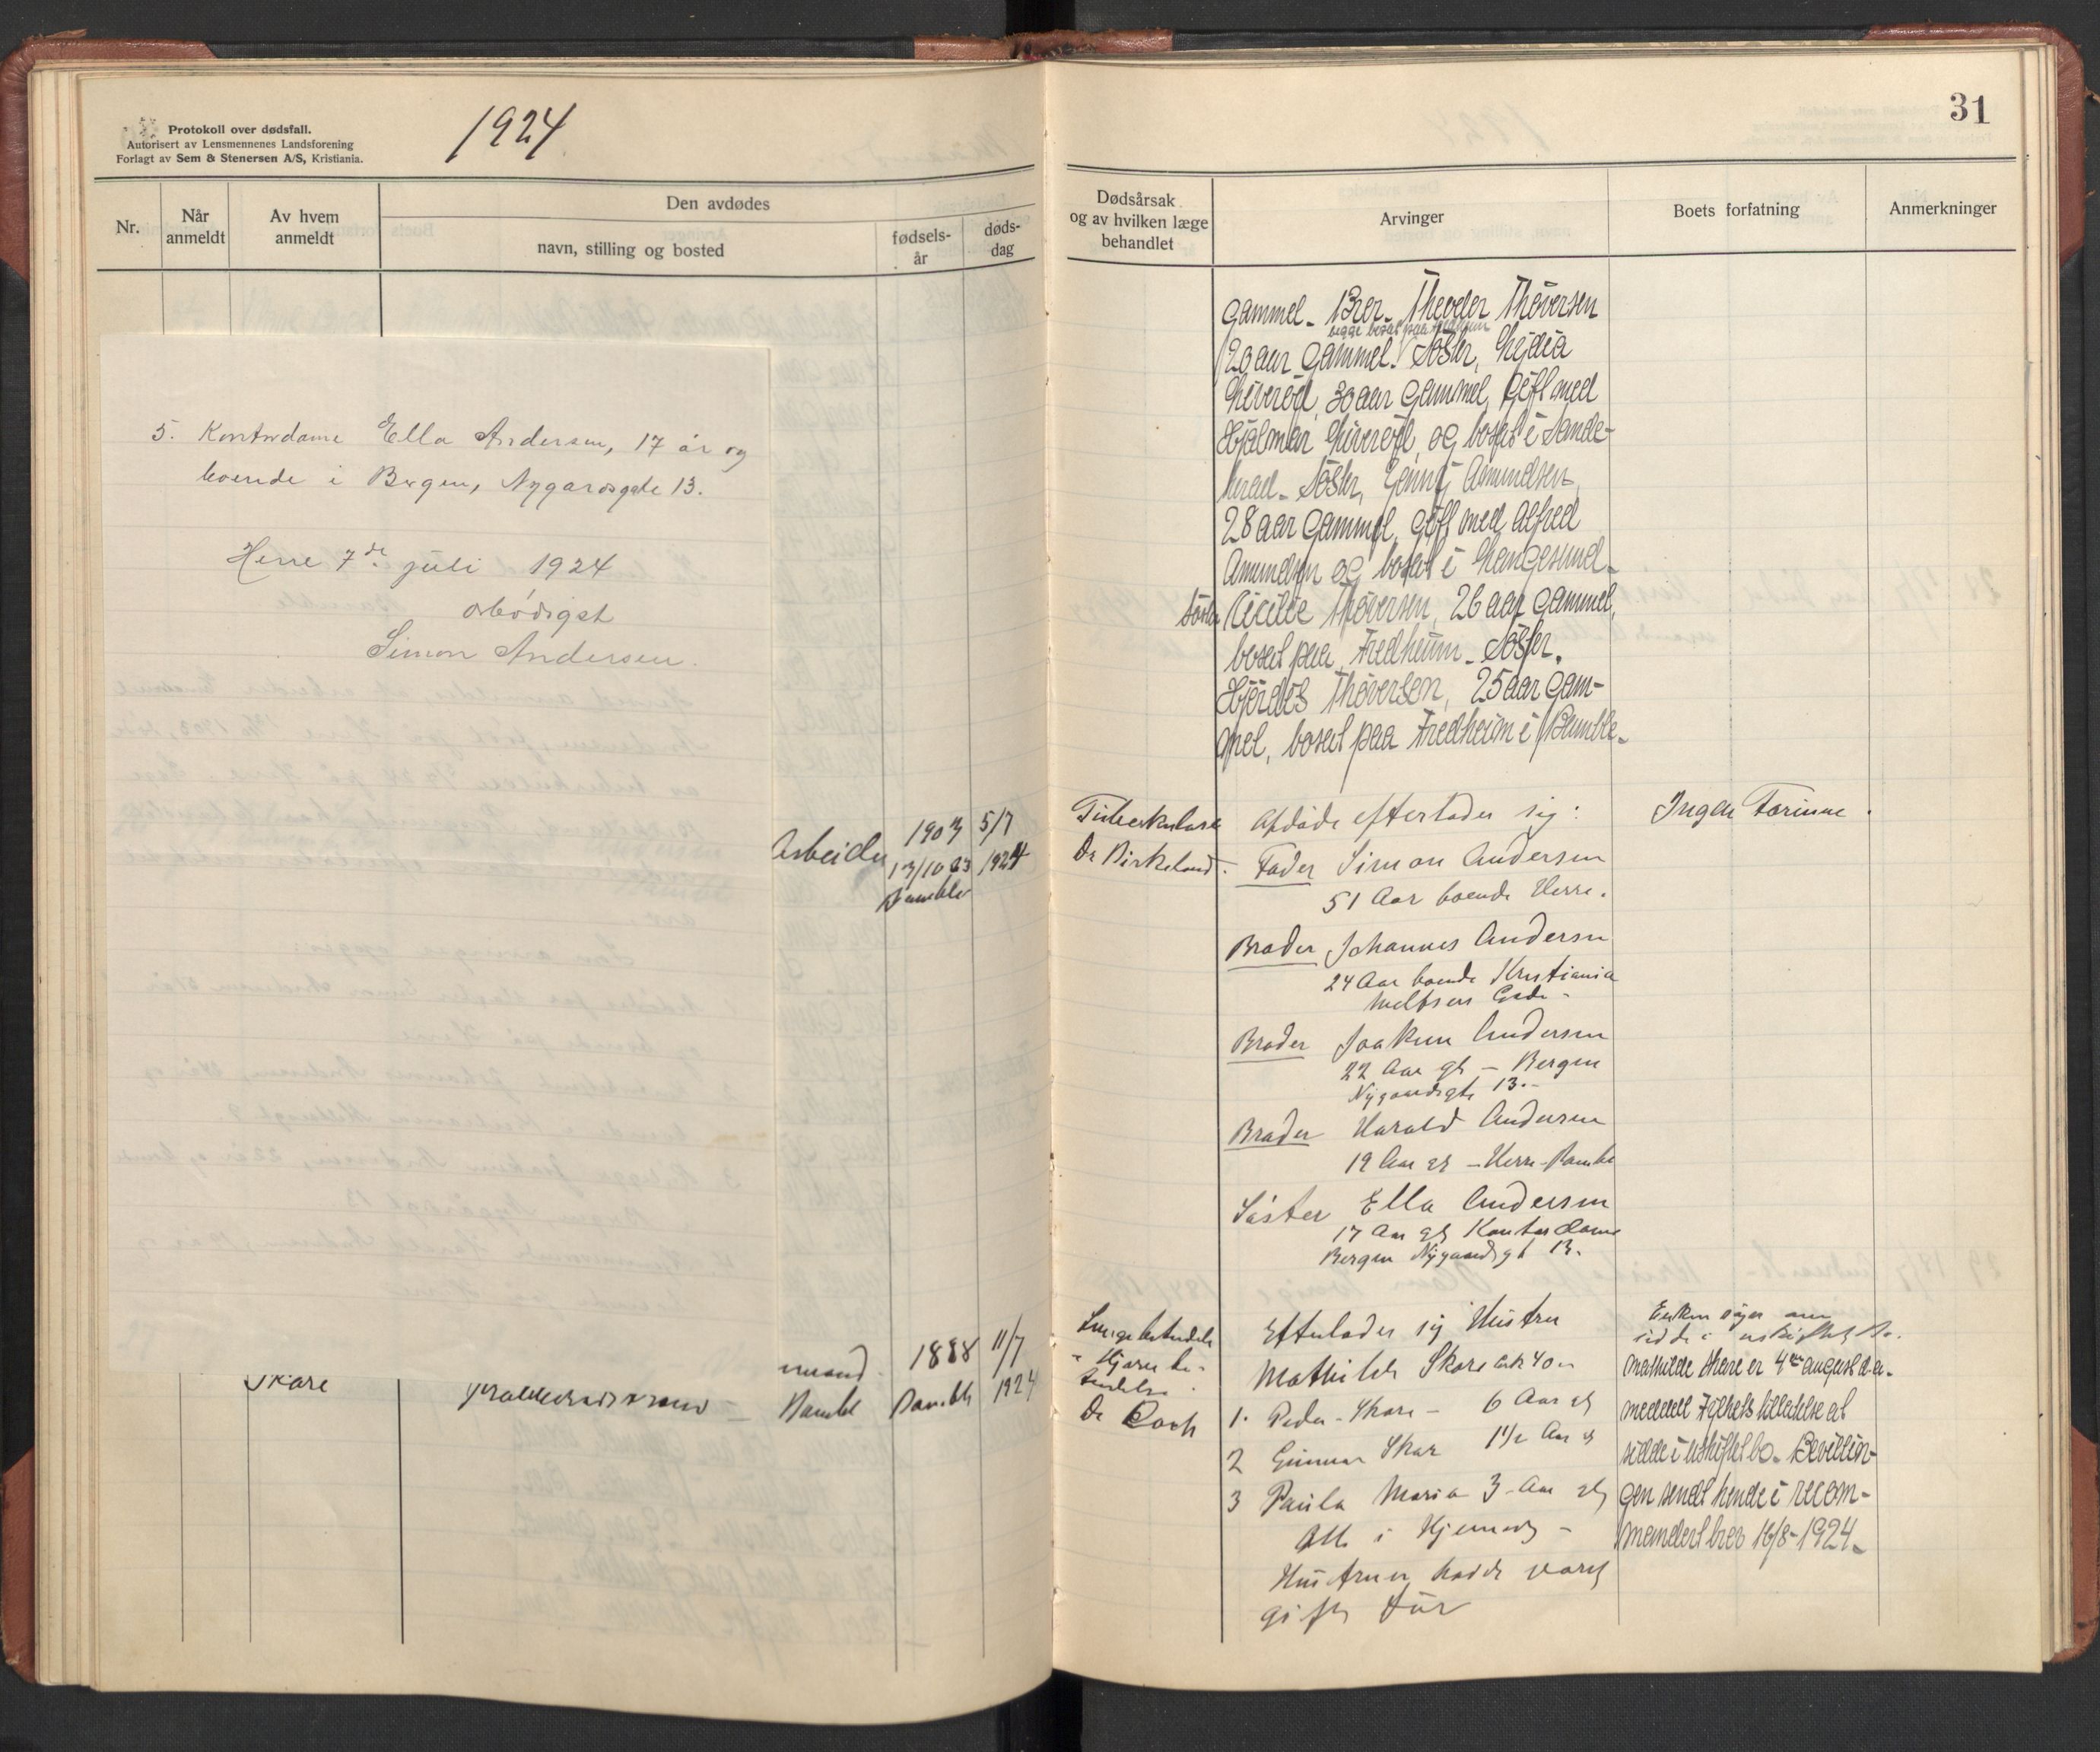 Protokoll over dødsfall.
Autorisert av Lensmennenes Landsforening
Forlagt av Sem & Stenersen A/S, Kristiania.
1924
Nr.
Når anmeldt
Av hvem anmeldt
Den avdødes
navn, stilling og bosted
fødsels-år
døds-dag
5. Kontordame Ella Andersen, 17 år og
boende i Bergen, Nygårdsgate 13.
Herre 7de juli 1924
ærbødigst
Simon Andersen.
Arbeider
1903
13/10 03
Bamble
5/7
1924
Skare
mand
Bamble
1888
Bamble
11/7
1924
31
Dødsårsak
og av hvilken læge
behandlet
Arvinger
Boets forfatning
Anmerkninger
gammel. Bror. Theodor Thoversen
begge bosat paa Fredheim
20 aar gammel. Søster, Lydia
Liverød, 30 aar gammel, gift med
Hjalmar Liverød, og bosat i Sande-
herad. Søster, Jenny Amundsen,
28 aar gammel, gift med Alfred
Amundsen og bosat i Langesund.
Søster Cecilie Thoversen, 26 aar gammel,
bosat paa Fredheim. Søster,
Hjørdis Thoversen, 25 aar gam-
mel, bosat paa Fredheim i Bamble.
Tuberkulose
Dr Birkeland.
Afdøde efterlader sig:
Fader Simon Andersen
51 Aar boende Herre.
Broder Johannes Andersen
24 Aar boende Kristiania
Gade
Broder Joakim Andersen
22 Aar gl - Bergen
Nygaardsgt 13.-
Broder Harald Andersen
19 Aar gl - Herre - Bamble
Søster Ella Andersen
17 Aar gl Kontordame
Bergen Nygaardsgt 13.
Ingen Formue.
Lungebetændelse
- Hjerne be-
tændelse.
Dr
Efterlader sig Hustru
Mathilde Skare 40
1. Peder - Skare - 6 Aar gl
2 Gunnar Skar 1 1/2 Aar gl
3 Paula Maria 3 Aar gl
Alle i Hjemmet -
Hustruen havde været
gift før
Enken søger om
sidde i uskiftet Bo.
Mathilde Skare er 4de august d.a.
meddelt Fylkets tilladelse at
sidde i uskiftet bo. Bevillin-
gen sendt hende i recom-
mandert brev 16/8-1924.